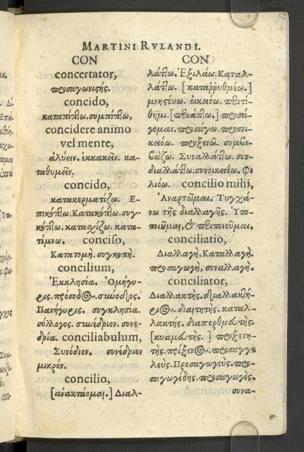 MARTINI RVLANDI.
CON
concertator,
προαγωνιστής.
concido,
καταπίπτω. συμπίπτω.
concidere animo
vel mente,
ἀλύειν. ἐκκακεῖν. κα-
ταθυμεῖν.
concido,
κατακερματίζω. Ε-
πικόπτω. Κατακόπτω. συγ-
κόπτω. καταχίζω. κατα-
τέμνω. conciso,
Κατατομή. συγκοπή.
concilium,
Ἐκκλησία. Ὁμήγυ-
ρις. πρόσοδος. σύνοδος.
Πανήγυρις. συγκλησία.
σύλλογος. συνέδριον. συνε-
δρία. conciliabulum,
Συνόδιον. συνέδριον
μικρόν.
concilio,
[ἀνακτάομαι.] Διαλ-
CON
λάττω. Ἐξιλάω. Καταλ-
λάττω.
μνηστεύω. οἰκειόω.
γομαι. προσάγω. προσοι-
κειόω. προξενῶ. συμβι-
βάζω. Συναλλάττω. συν-
διαλλάττω. συνοικειόω. Φι-
λιόω. concilio mihi,
Ἀναρτῶμαι. Τυγχά-
νω τῆς διαλλαγῆς. Ὑπο-
ποιοῦμαι,
conciliatio,
Διαλλαγή. Καταλλαγή.
προσαγωγή, συναλλαγή.
conciliator,
Διαλλακτής. διαλλακτή-
ριος. διαιτητής. καταλ-
λακτής.
προξενη-
τής. πρόξενος.
λεύς. Προσαγωγεύς.
σαγωγίδης. προσαγωγός.
συνα-